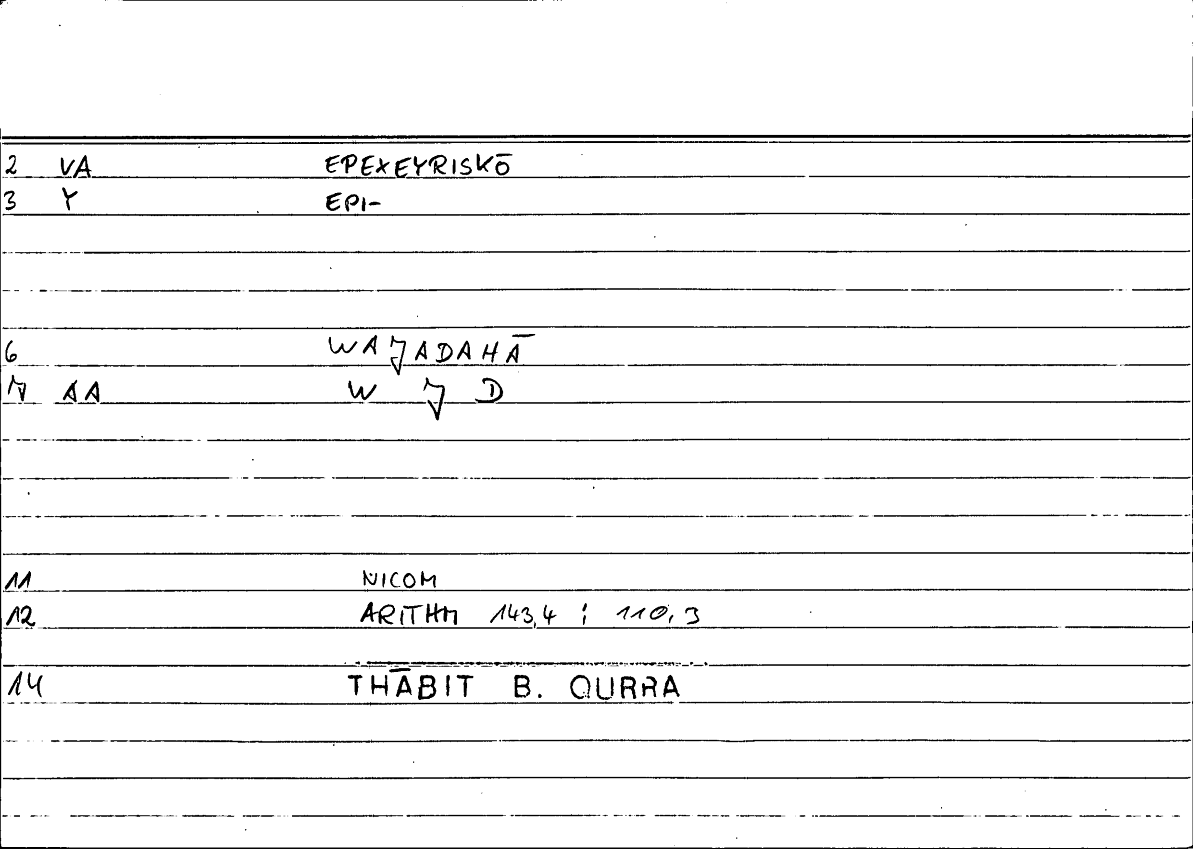 2 VA EPEXEYRISKŌ
3 Y EPI-
6 WAJADAHĀ
7 AA W J D
11 NICOM
12 ARITHM 143,4 ; 110,3
14 THĀBIT B. QURRA